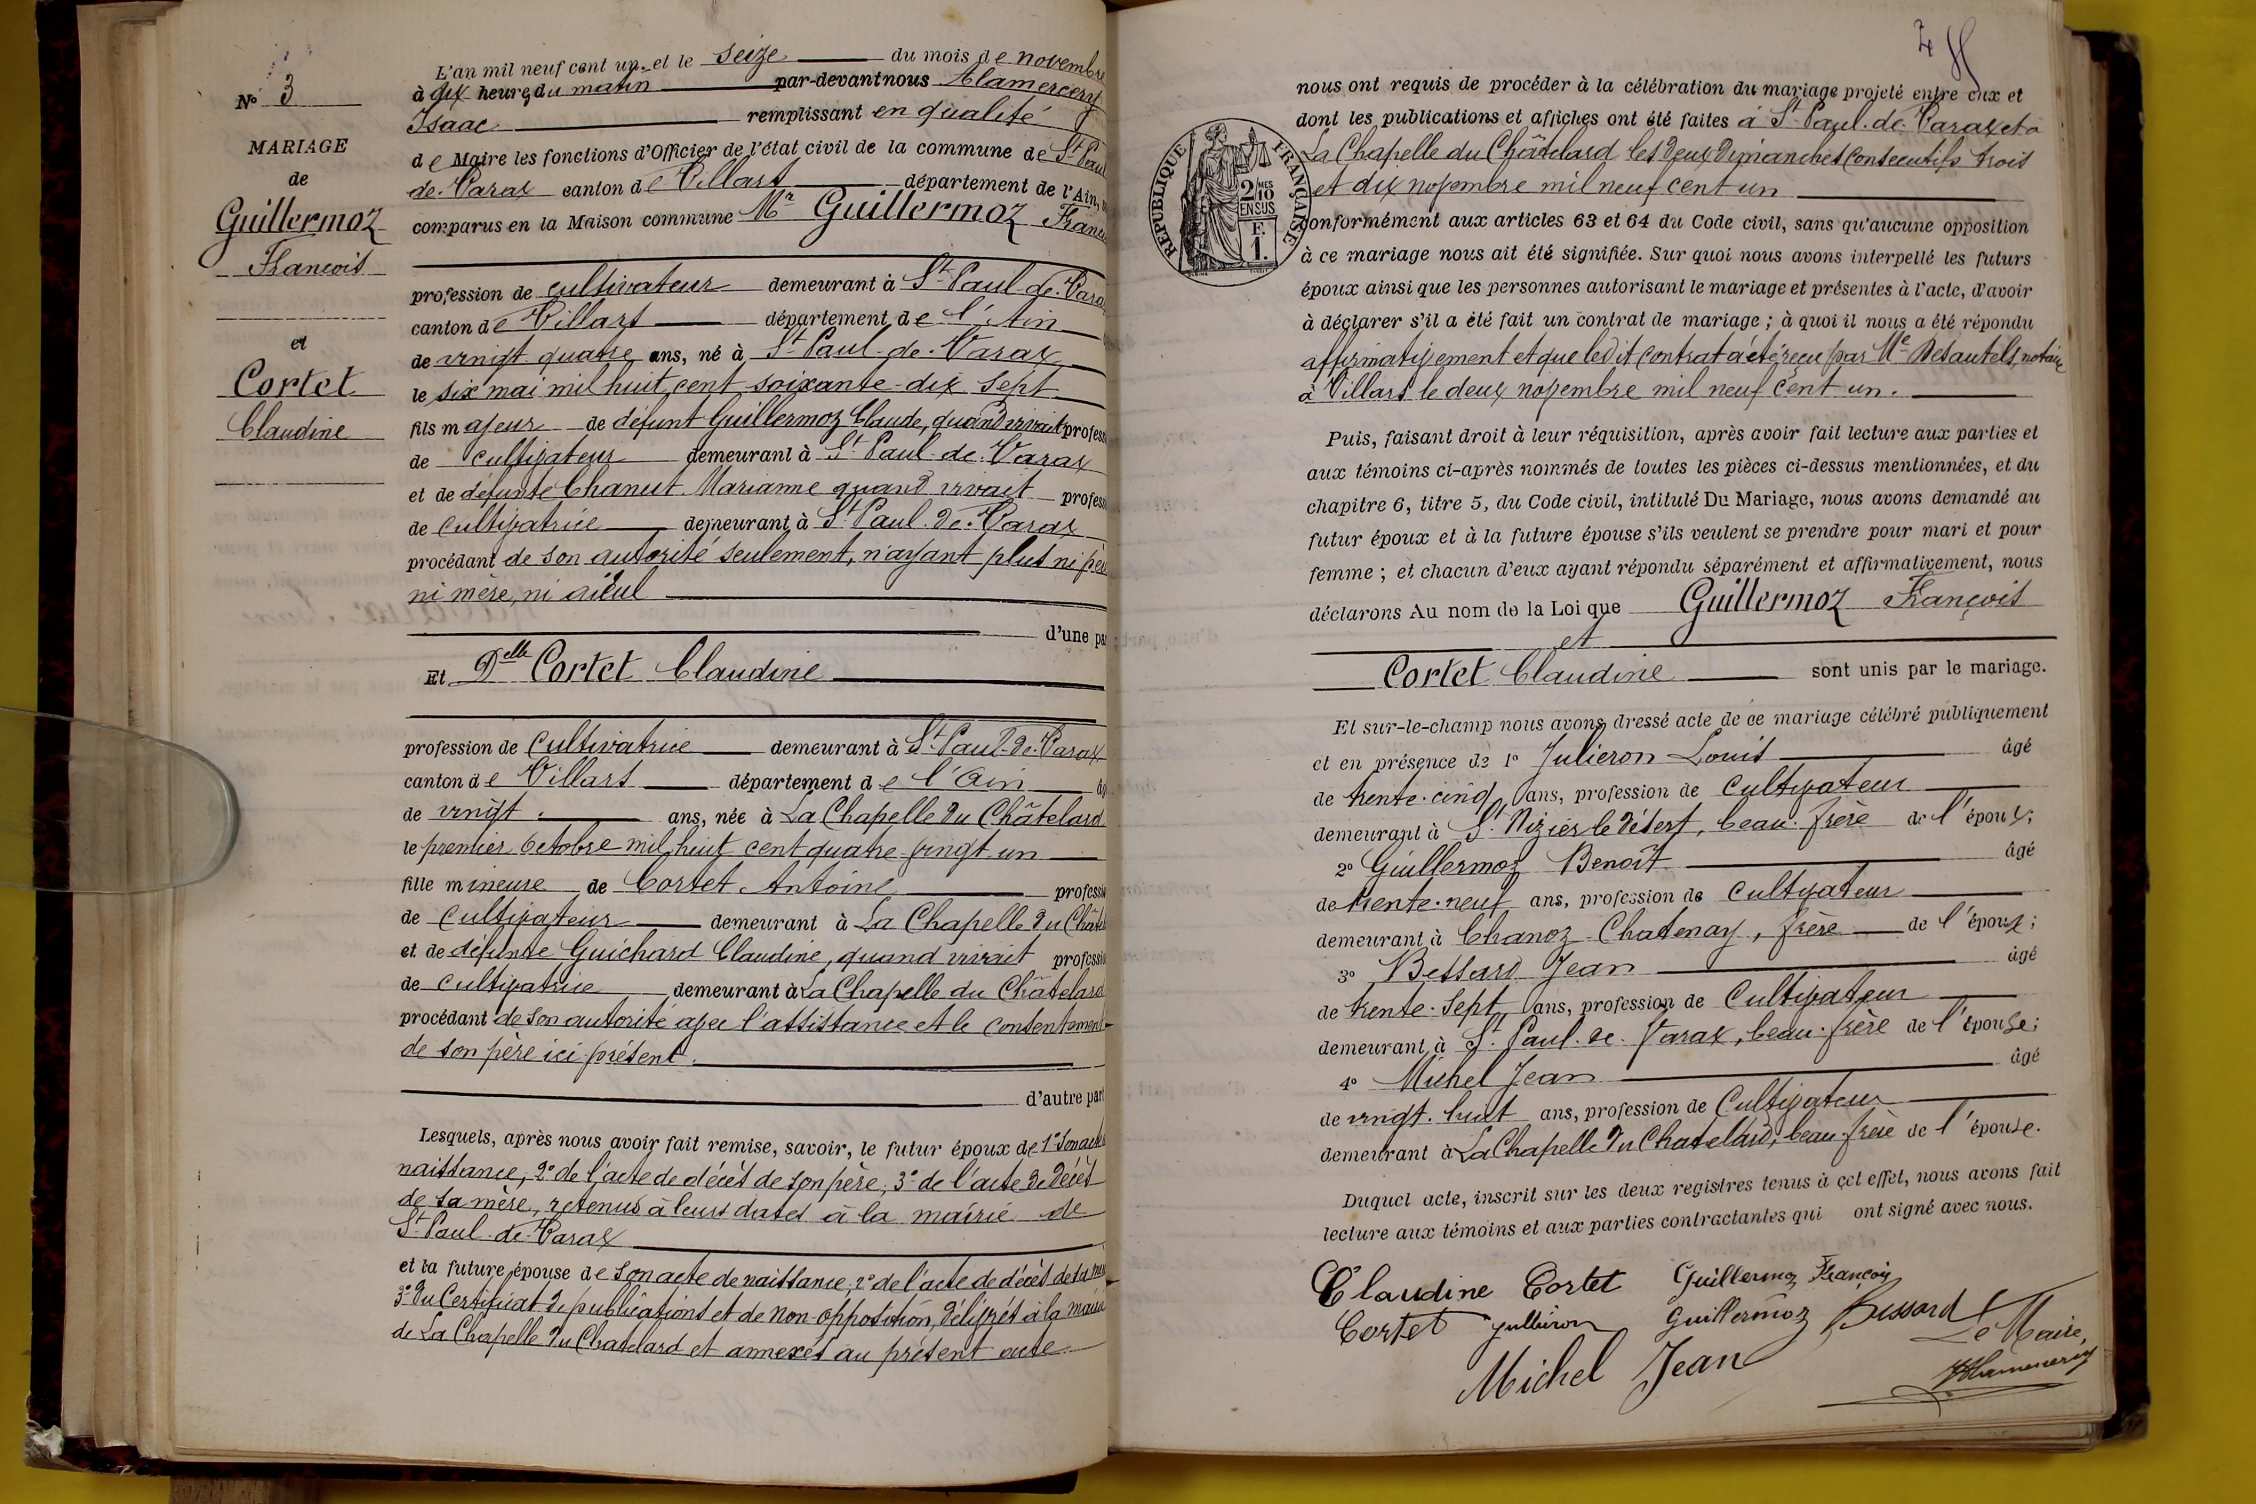 N° 3
MARIAGE
de
Guillermoz
François
et
Cortet
Claudine
L'an mil neuf cent un, et le seize du mois de novembre
à dix heures du matin par-devant nous Clamercery
Isaac remplissant en qualité
de Maire les fonctions d'Officier de l'état civil de la commune de St Paul
de Varax canton de Villars département de l'Ain,
comparus en la Maison commune Mr Guillermoz
profession de cultivateur demeurant à St Paul de Varax
canton de Villars département de l'Ain
de vingt quatre ans, né à St Paul de Varax
le six mai mil huit cent soixante-dix sept
fils majeur de défunt Guillermoz Claude, quand vivait
de cultivateur demeurant à St Paul de Varax
et de défunte Chanut Marianne quand vivait
de cultivatrice demeurant à St Paul de Varax
procédant de son autorité seulement, n'ayant plus ni père
ni mère, ni aïeul
d'une par
Et Delle Cortet Claudine
profession de cultivatrice demeurant à St Paul de Varax
canton de Villars département de l'Ain
de vingt ans, née à La Chapelle du Châtelard
le premier Octobre mil huit cent quatre vingt un
fille mineure de Cortet Antoine
de cultivateur demeurant à La Chapelle du
et de défunte Guichard Claudine, quand vivait
de cultivatrice demeurant à La Chapelle du Châtelard
procédant de son autorité avec l'assistance et le consentement
de son père ici présent.
d'autre part
Lesquels, après nous avoir fait remise, savoir, le futur époux de 1° Son acte
naissance, 2° de l'acte de décès de son père, 3° de l'acte de décès
de sa mère, retenus à leurs dates à la mairie de
St Paul de Varax
et la future épouse de son acte de naissance, 2° de l'acte de décès de sa
3° du Certificat de publications et de non-opposition, délivrés à la
de La Chapelle du Chatelard et annexés au présent acte
RÉPUBLIQUE FRANÇAISE
2 MES 10
EN SUS
F.
1.
nous ont requis de procéder à la célébration du mariage projeté entre eux et
dont les publications et affiches ont été faites à St Paul de Varax et à
La Chapelle du Châtelard les deux dimanches consecutifs trois
et dix novembre mil neuf cent un
conformément aux articles 63 et 64 du Code civil, sans qu'aucune opposition
à ce mariage nous ait été signifiée. Sur quoi nous avons interpellé les futurs
époux ainsi que les personnes autorisant le mariage et présentes à l'acte, d'avoir
à déclarer s'il a été fait un contrat de mariage ; à quoi il nous a été répondu
affirmativement et que ledit contrat a été reçu par Me Desautels, notaire
à Villars le deux novembre mil neuf cent un.
Puis, faisant droit à leur réquisition, après avoir fait lecture aux parties et
aux témoins ci-après nommés de toutes les pièces ci-dessus mentionnées, et du
chapitre 6, titre 5, du Code civil, intitulé Du Mariage, nous avons demandé au
futur époux et à la future épouse s'ils veulent se prendre pour mari et pour
femme ; et chacun d'eux ayant répondu séparément et affirmativement, nous
déclarons Au nom de la Loi que Guillermoz François
et
Cortet Claudine sont unis par le mariage.
Et sur-le-champ nous avons dressé acte de ce mariage célébré publiquement
et en présence de 1° Julieron Louis âgé
de trente-cinq ans, profession de cultivateur
demeurant à St Nizier le Désert, beau-frère de l'époux;
2° Guillermoz Benoît âgé
de trente-neuf ans, profession de cultivateur
demeurant à Chanoz Chatenay, frère de l'époux;
3° Bessard Jean âgé
de trente-sept ans, profession de cultivateur
demeurant à St Paul de Varax, beau-frère de l'épouse;
4° Michel Jean âgé
de vingt-huit ans, profession de cultivateur
demeurant à La Chapelle du Chatelard, beau-frère de l'épouse.
Duquel acte, inscrit sur les deux registres tenus à cet effet, nous avons fait
lecture aux témoins et aux parties contractantes qui ont signé avec nous.
Claudine Cortet Guillermoz François
Cortet Julliéron Guillermoz Bessard
Le Maire,
Michel Jean
Clamercery